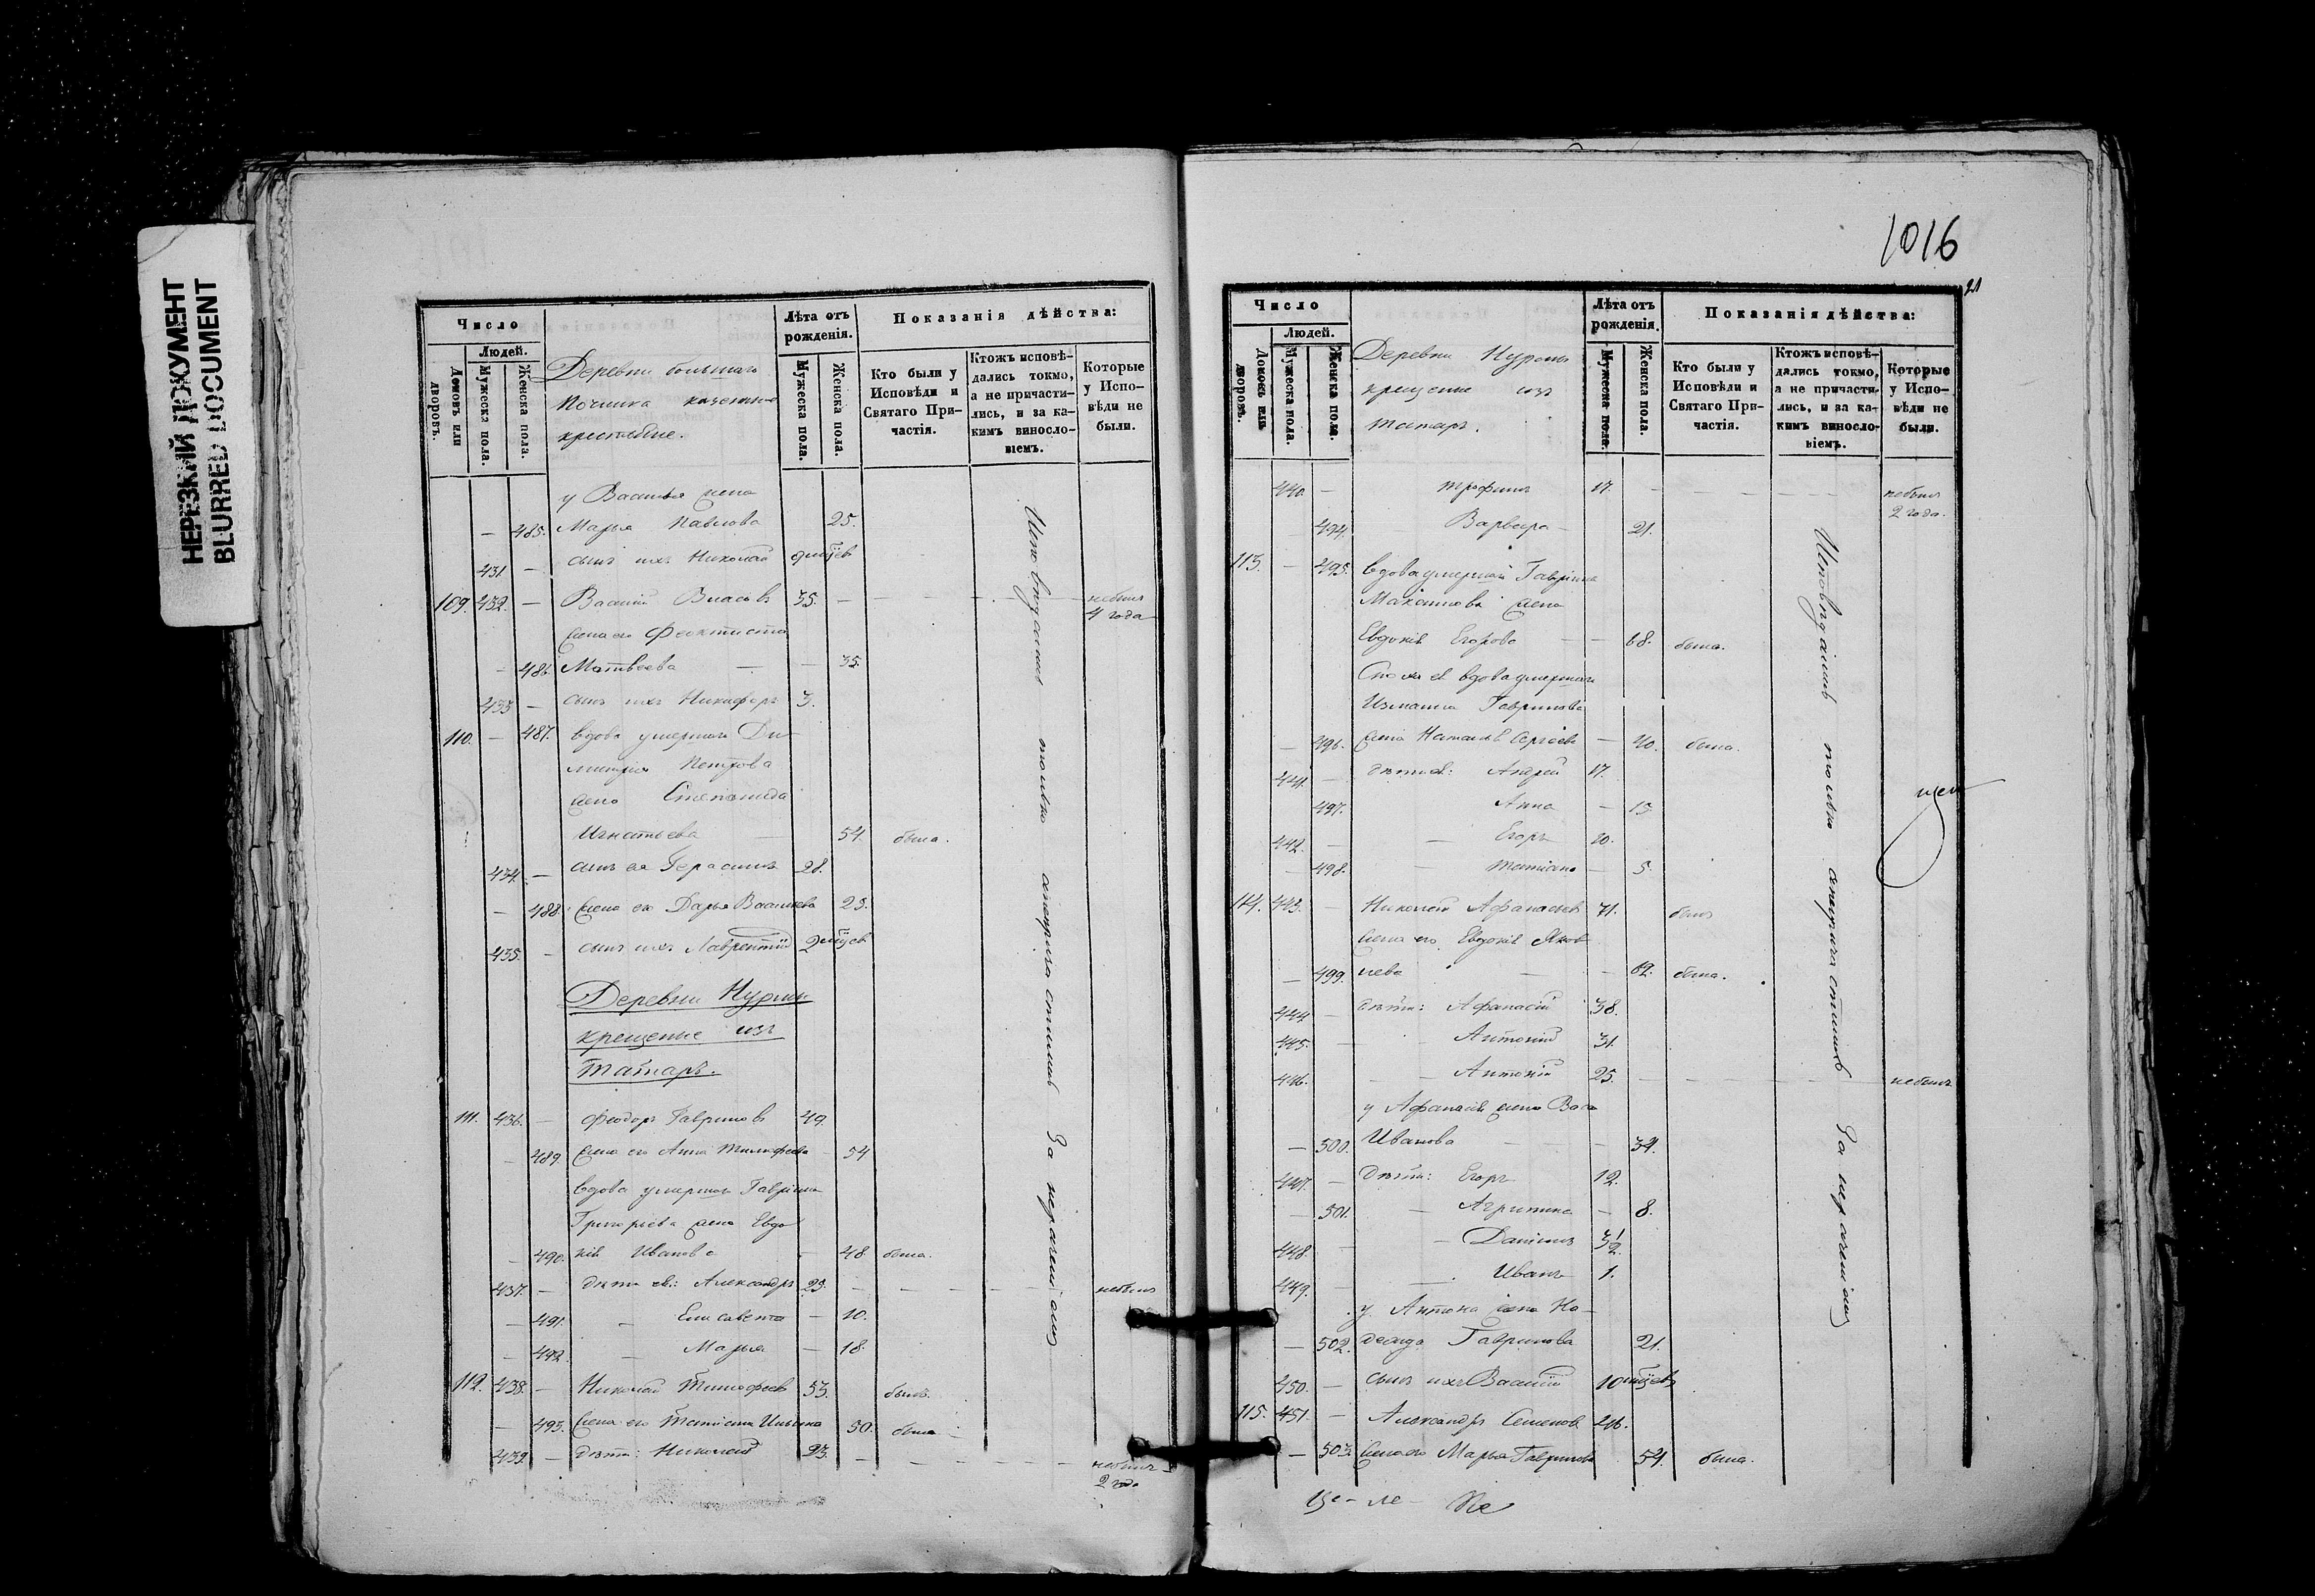 НЕРЕЗКИЙ ДОКУМЕНТ
BLURRED DOCUMENT
Число
Людей.
Домовъ или дворовъ.
Мужеска пола.
Женска пола.
Деревни большаго
Починка казенные
крестьяне.
Лѣта отъ рожденія.
Мужеска пола.
Женска пола.
Показанія дѣйства:
Кто были у Исповѣди и Святаго Причастія.
Ктожъ исповѣдались токмо, а не причастились, и за какимъ винословіемъ.
Которые у Исповѣди не были.
у Василья жена
— 485. Марья Павлова 25.
431. — сынъ ихъ Николай
109. 432. — Василій Власовъ 35. — небылъ 4 года
жена его Феоктиста
— 486 Матвѣева — — 35.
433 — сынъ ихъ Никифоръ 3.
110. — 487. вдова умершаго Ди-
митрія Петрова
жена Степанида
Игнатьева — 54. была.
434. — сынъ ея Герасимъ 28.
— 488. жена его Дарья Васильева 25.
435. — сынъ ихъ Лаврентій
Деревни Нурмы
крещеные изъ
Татаръ.
111. 436. — Феодоръ Гавриловъ 49.
— 489. жена его Анна Тимофеева 54
вдова умершаго Гавріила
Григорьева жена Евдо
— 490. кія Иванова — 48. была.
437. — дѣти ея: Александръ 23. — небылъ
— 491. — Елисавета — 10.
— 492. — Марья — 18.
112. 438. — Николай Тимофеевъ 53. былъ.
— 493. жена его Татіана Ильина 50. была
439. — дѣти: Николай 23. — небылъ 2 года
Исповѣдались только а непричастились За нераченіемъ
1016
21
Число
Людей.
Домовъ или дворовъ.
Мужеска пола.
Женска пола.
Деревни Нурмы
крещеные изъ
татаръ.
Лѣта отъ рожденія.
Мужеска пола.
Женска пола.
Показанія дѣйства:
Кто были у Исповѣди и Святаго Причастія.
Ктожъ исповѣдались токмо, а не причастились, и за какимъ винословіемъ.
Которые у Исповѣди не были.
440. — Трофимъ 17. — небылъ 2 года.
494. Варвара — 21.
113. — 495. вдова умершаго Гавріила
Максимова жена
Евдокія Егорова — — 68. была.
Сноха ея вдова умершаго
Измаила Гаврилова
— 496. жена Наталья Сергѣева — 40. была.
441. — дѣти ея: Андрей 17.
497. Анна — 15
442. — — Егоръ 10.
— 498. Татіана — 5.
114. 443. — Николай Афанасьевъ 71. былъ
жена его Евдокія Яков
— 499. лева — — 62. была.
444 — дѣти: Афанасій 38.
445. — Антоній 31.
446. — — Антоній 25. — небылъ
у Афанасія жена Васа
— 500. Иванова — — 34.
447. — Дѣти: Егоръ 12.
— 501. — Агрипина — 8.
448. — — Даніилъ 3 1/2.
449. — — Иванъ 1.
у Антона жена На-
— 502. дежда Гаврилова 21.
450. — сынъ ихъ Василій
115. 451. — Александръ Семеновъ 46.
— 503. жена его Марья Гаврилова 54. была.
Исповѣдались только а непричастились За нераченіемъ